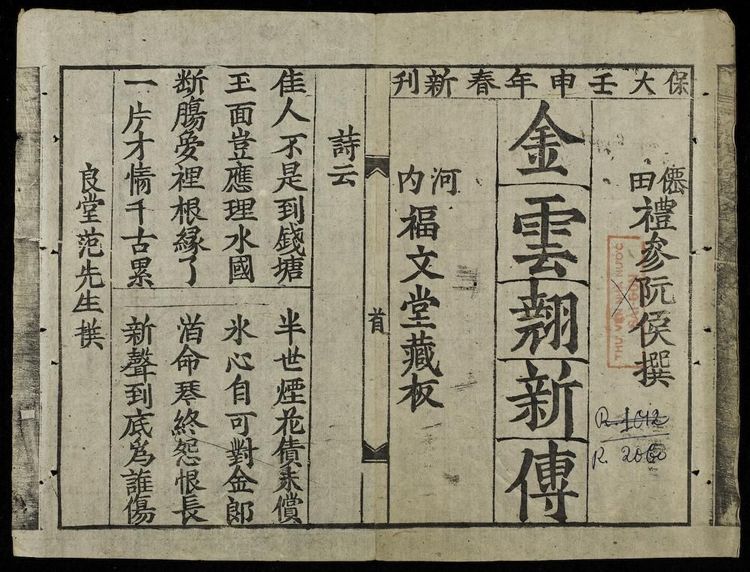 保大壬申年春新刊
僊田禮參阮侯撰
金雲翹新傳
河内福文堂藏板
R. 1012
R. 2060
首
詩云
佳人不是到錢塘 半世煙花債未償
玉面豈應埋水國 氷心自可對金郎
断膓夢裡根縁了 命琴終怨恨長
一片才情千古累 新聲到底爲誰傷
良堂范先生撰